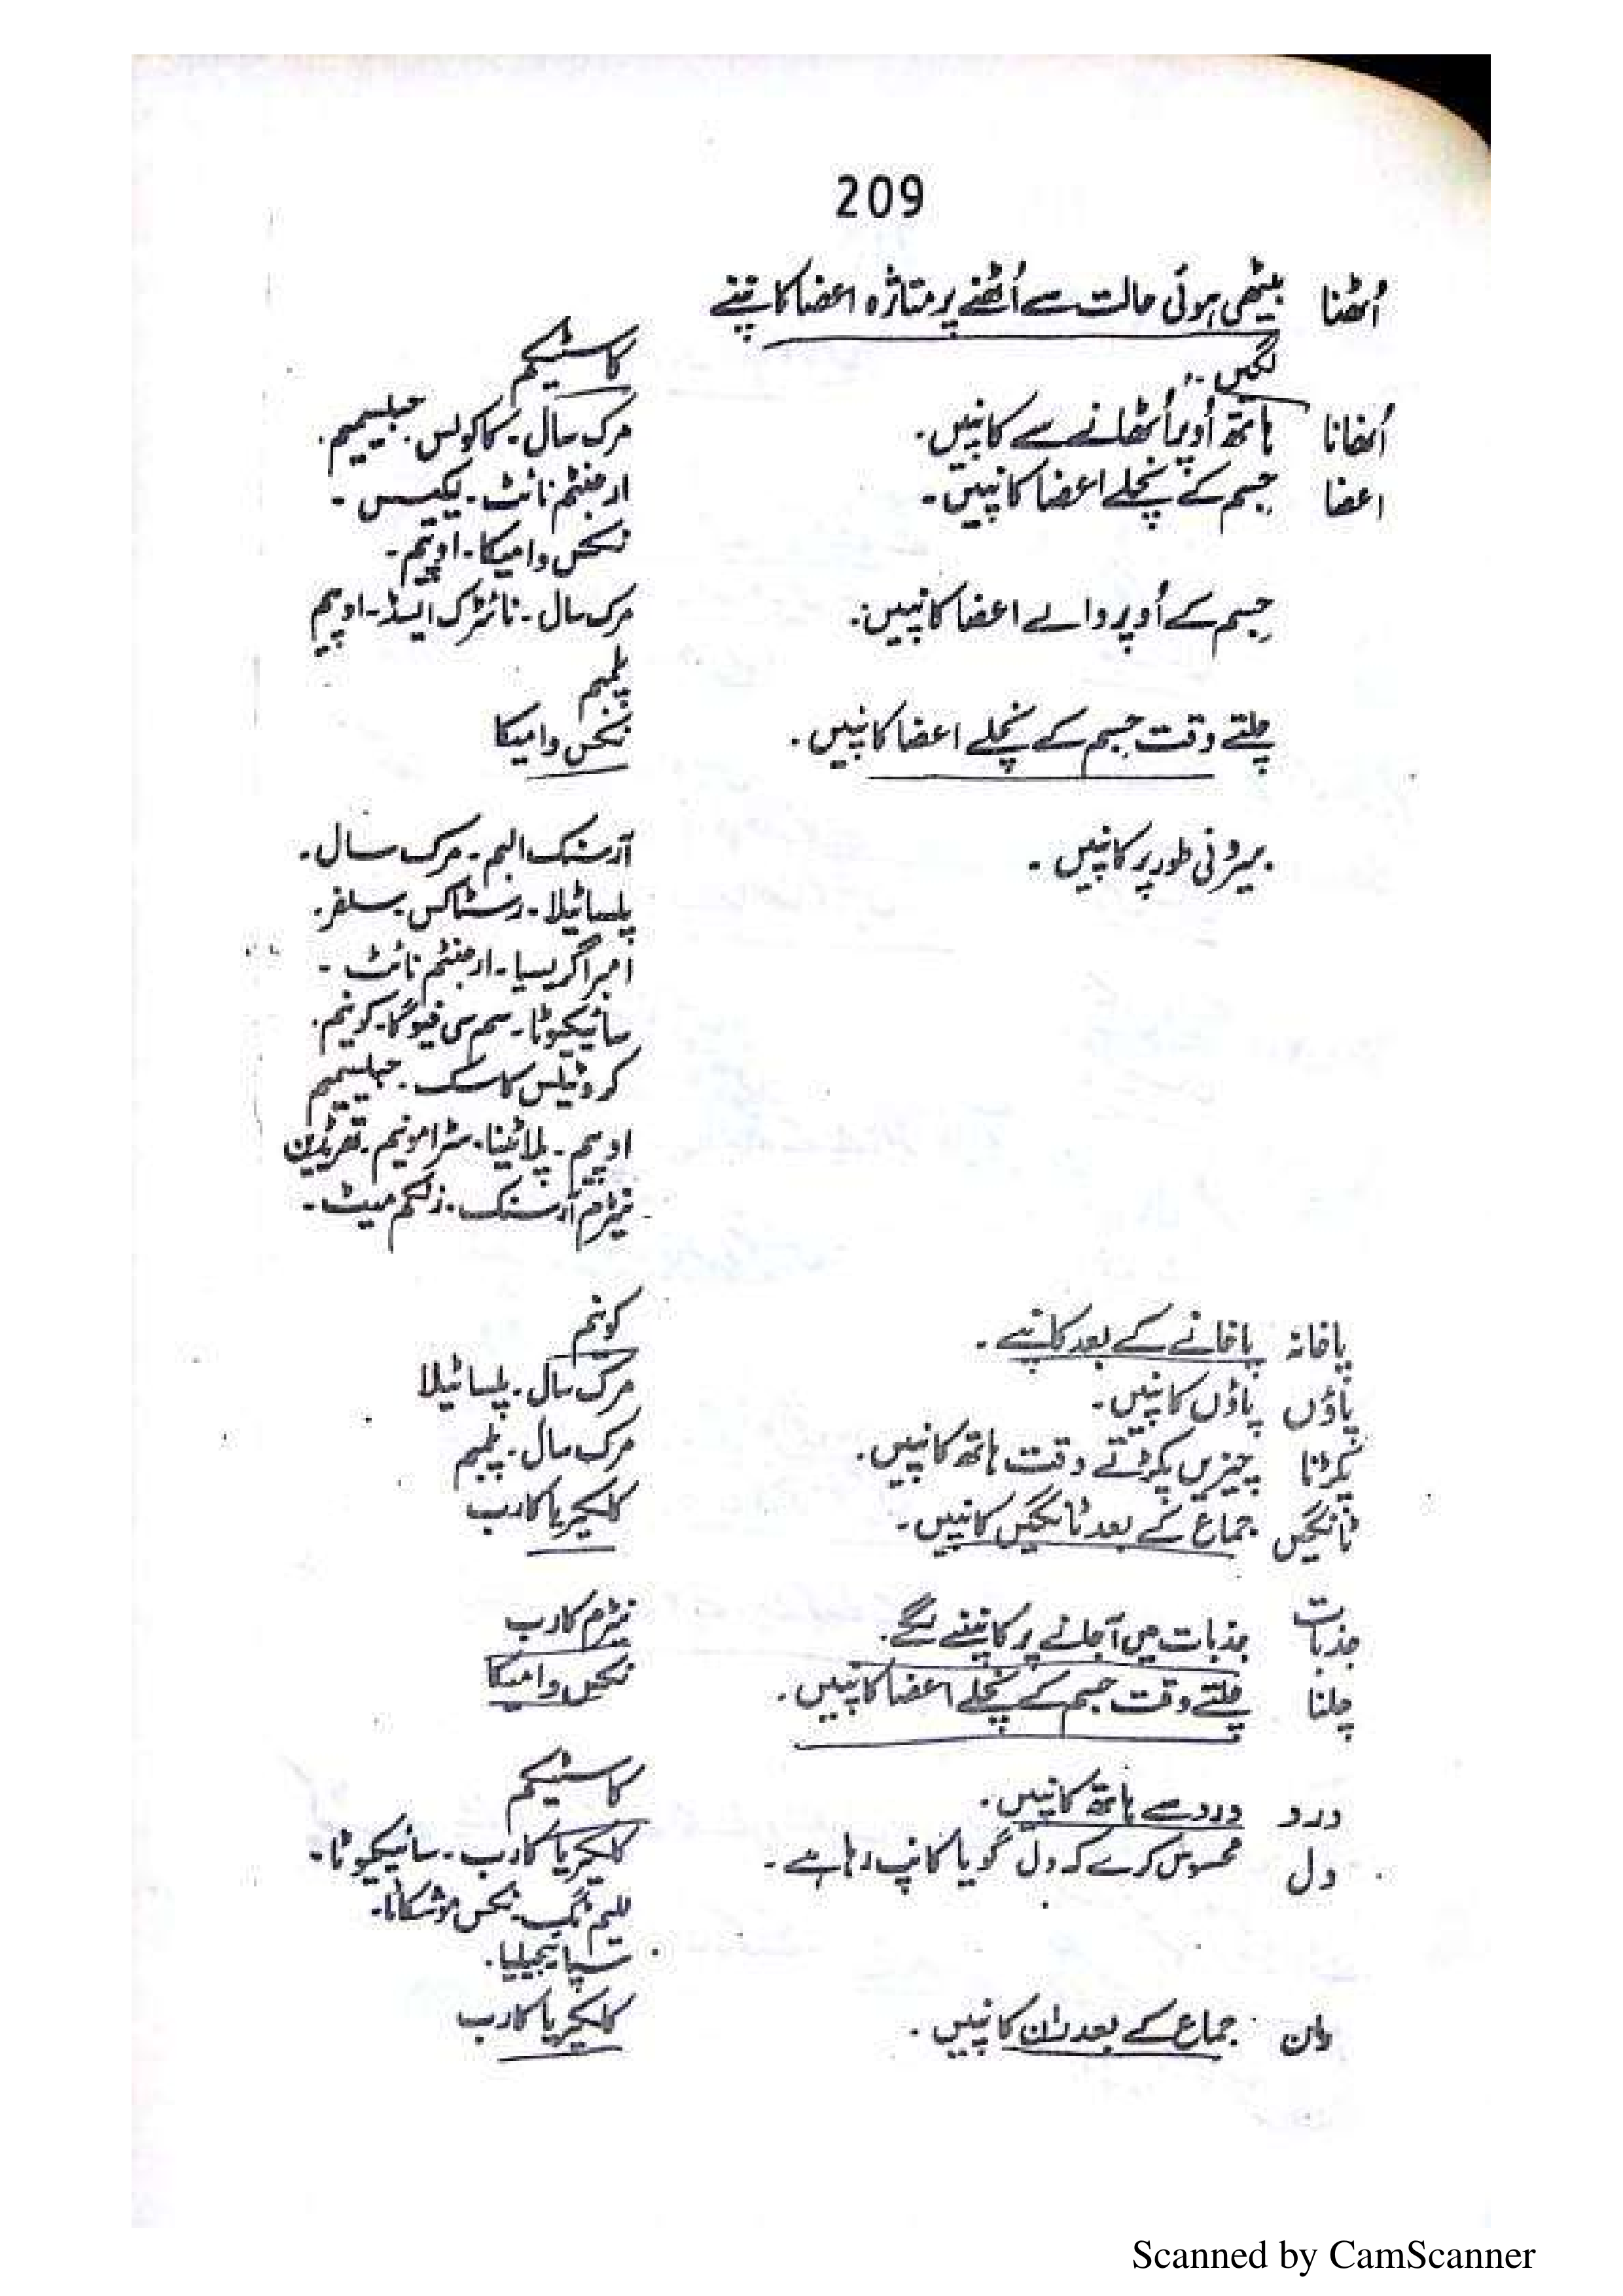 209
اُٹھنا بیٹھی ہوئی حالت سے اُٹھنے پر متاثرہ اعضا کانپنے
لگیں۔ کاسٹیکم
اُٹھانا ہاتھ اُوپر اُٹھانے سے کانپیں۔ مرک سال۔ کاکولس۔ جیلسیمیم۔
اعضا جِسم کے نچلے اعضا کانپیں۔ ارجنٹم نائٹ۔ لیکیسس۔
نکس وامیکا۔ اوپیم۔
جِسم کے اُوپر والے اعضا کانپیں۔ مرک سال۔ نائٹرک ایسڈ۔ اوپیم
پلمبم
چلتے وقت جسم کے نچلے اعضا کانپیں۔ نکس وامیکا
بیرونی طور پر کانپیں۔ آرسنک البم۔ مرک سال۔
پلساٹیلا۔ رسٹاکس۔ سلفر۔
امبراگریسیا۔ ارجنٹم نائٹ۔
سائیکیوٹا۔ سم سی فیوگا۔ کونیم۔
کروٹیلس کاسک۔ جیلسیمیم
اوپیم۔ پلاٹینا۔ سٹرامونیم۔ تھریڈین
نیٹرم آرسنک۔ زنکم میٹ۔
پاخانہ پاخانے کے بعد کانپے۔ کونیم
پاؤں پاؤں کانپیں۔ مرک سال۔ پلساٹیلا
پکڑنا چیزیں پکڑتے وقت ہاتھ کانپیں۔ مرک سال۔ پلمبم
ٹانگیں جماع کے بعد ٹانگیں کانپیں۔ کلکیریا کارب
جذبات جذبات میں آجانے پر کانپنے لگے۔ نیٹرم کارب
چلنا چلتے وقت جسم کے نچلے اعضا کانپیں۔ نکس وامیکا
درد درد سے ہاتھ کانپیں۔ کاسٹیکم
دل محسوس کرے کہ دل گویا کانپ رہا ہے۔ کلکیریا کارب۔ سائیکیوٹا۔
للیم ٹگ۔ نکس موشکاٹا۔
سپائیجیلیا۔
ران جماع کے بعد ران کانپیں۔ کلکیریا کارب
Scanned by CamScanner